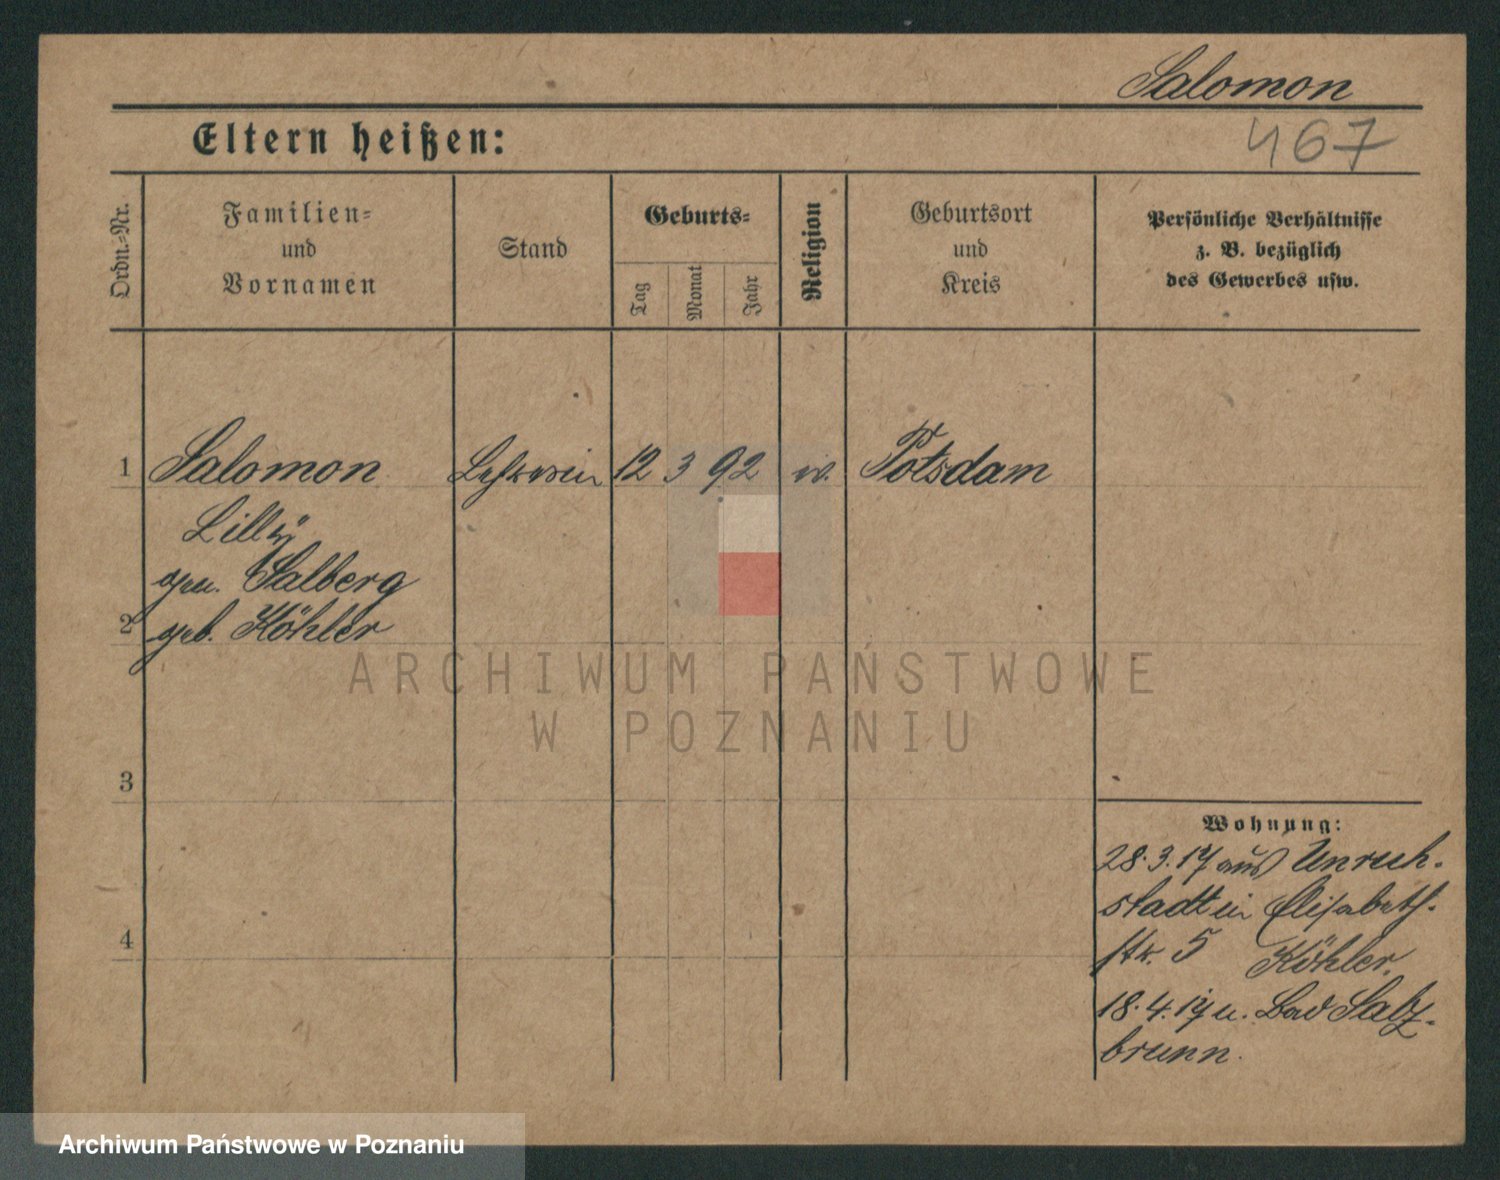 Salomon
Eltern heißen:
467
Ordn.-Nr.
Familien-
und
Vornamen
Stand
Geburts-
Tag
Monat
Jahr
Religion
Geburtsort
und
Kreis
Persönliche Verhältnisse
z. B. bezüglich
des Gewerbes usw.
1 Salomon 12 3 92 Potsdam
Lilly
gen. Salberg
2 geb. Köhler
ARCHIWUM PAŃSTWOWE
W POZNANIU
3
Wohnung:
28.3.17 aus Unruh-
stadt in Elisabeth-
4
str. 5 Köhler.
18.4.17 n. Bad Salz-
brunn.
Archiwum Państwowe w Poznaniu